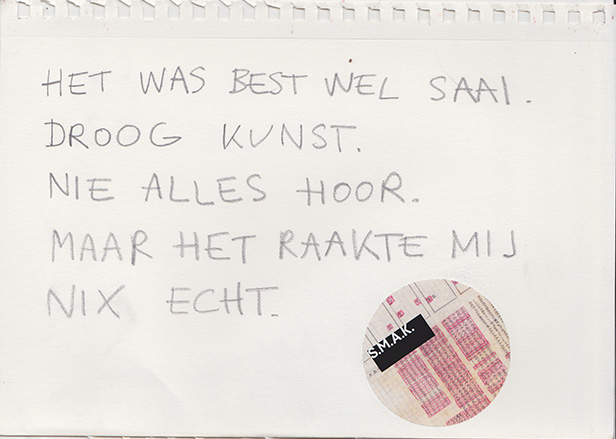 HET WAS BEST WEL SAAI.
DROOG KUNST.
NIE ALLES HOOR.
MAAR HET RAAKTE MIJ
NIX ECHT.
S.M.A.K.